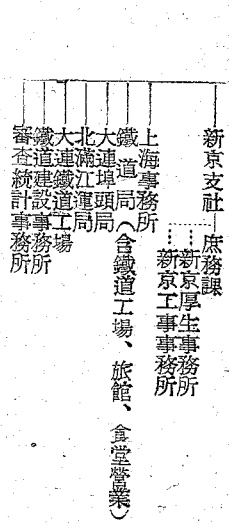 新京支社―庶務課
新京厚生事務所
新京工事事務所
上海事務所
鐵道局(含鐵道工場、旅館、食堂營業)
大連埠頭局
北滿江運局
大連鐵道工場
鐵道建設事務所
審查統計事務所